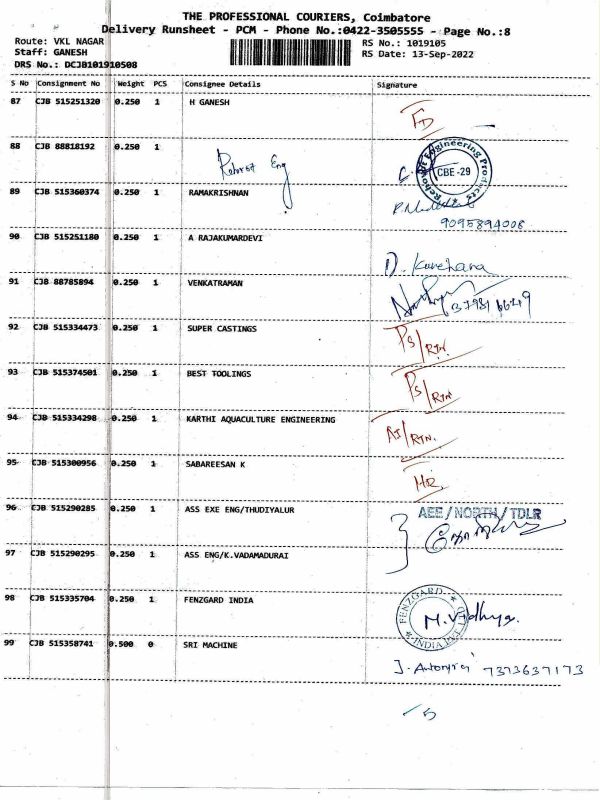 THE PROFESSIONAL COURIERS, Coimbatore
Delivery Runsheet - PCM - Phone No.:0422-3505555 - Page No.:8
Route: VKL NAGAR
Staff: GANESH
DRS No.: DCJB101910508
RS No.: 1019105
RS Date: 13-Sep-2022
S No Consignment No Weight PCS Consignee Details Signature
87 CJB 515251320 0.250 1 H GANESH
FD
88 CJB 88818192 0.250 1
Eng
Engineering Products
CBE-29
89 CJB 515360374 0.250 1 RAMAKRISHNAN
9095894008
90 CJB 515251180 0.250 1 A RAJAKUMARDEVI
91 CJB 88785894 0.250 1 VENKATRAMAN
92 CJB 515334473 0.250 1 SUPER CASTINGS
PS/RTN.
93 CJB 515374501 0.250 1 BEST TOOLINGS
PS/RTN
94 CJB 515334298 0.250 1 KARTHI AQUACULTURE ENGINEERING
RTN.
95 CJB 515300956 0.250 1 SABAREESAN K
96 CJB 515290285 0.250 1 ASS EXE ENG/THUDIYALUR
AEE/NORTH/TDLR
97 CJB 515290295 0.250 1 ASS ENG/K.VADAMADURAI
98 CJB 515335704 0.250 1 FENZGARD INDIA
FENZGARD INDIA PVT LTD
M.Vidhya.
99 CJB 515358741 0.500 0 SRI MACHINE
J. Antonyraj 7373637173